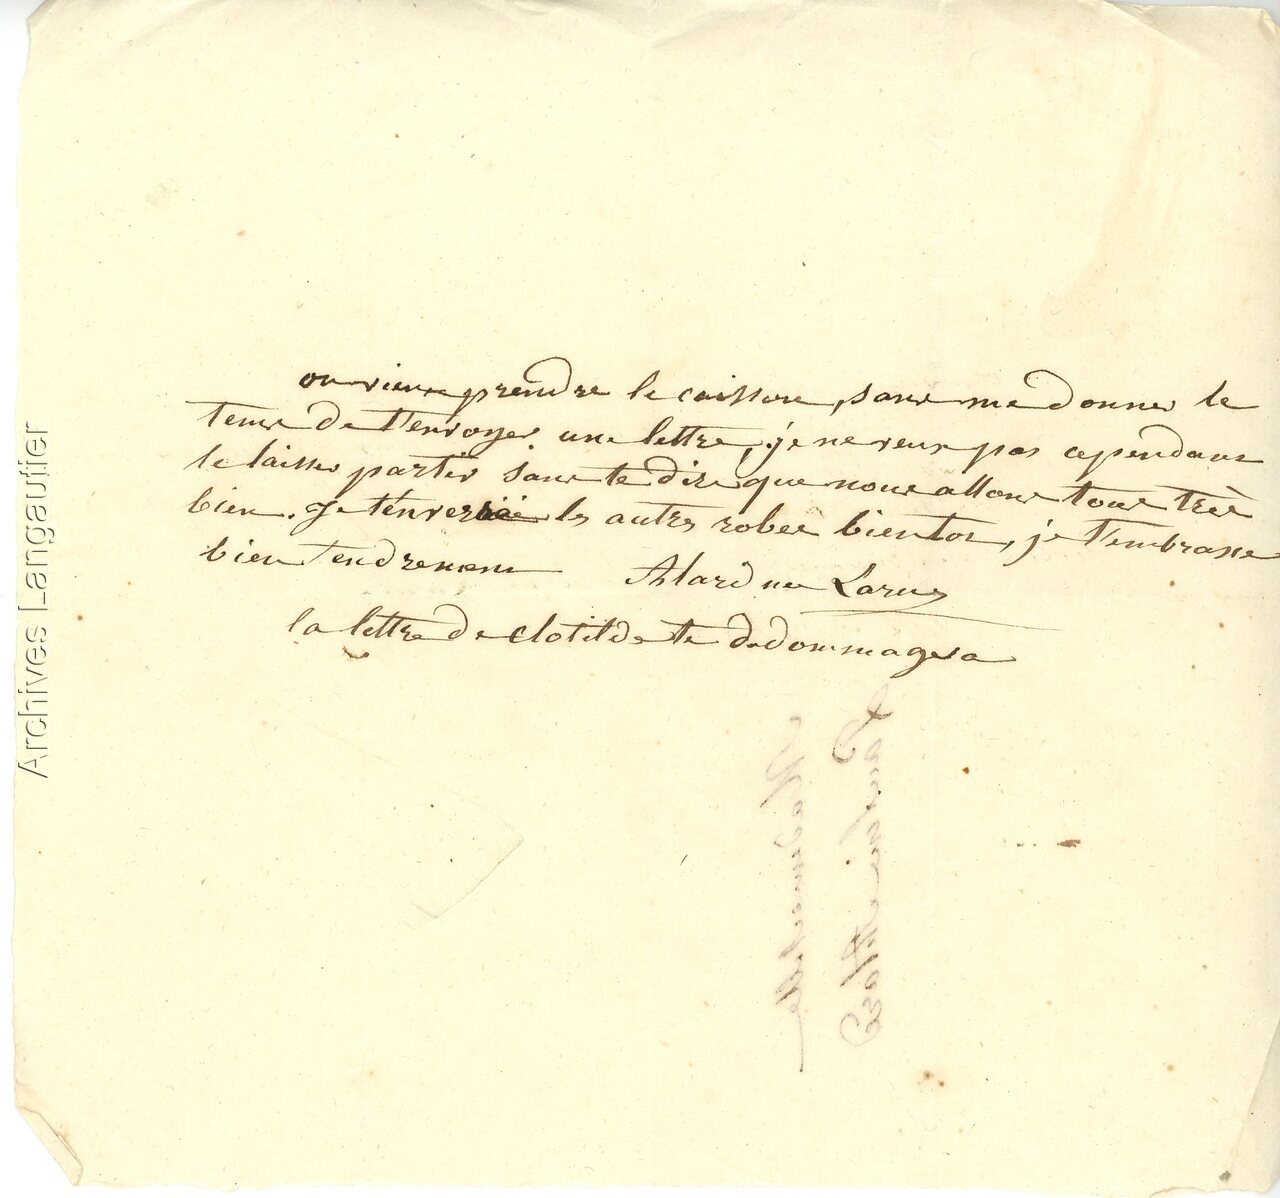 on vient prendre le caisson, sans me donner le
tems de t'envoyer une lettre, je ne veux pas cependant
le laisser partir sans te dire que nous allons tous très
bien. Je t'enverrai les autres robes bientot, je t'embrasse
bien tendrement Alard née Larue
la lettre de Clotilde te dedommagera
Mademoiselle
Archives Langautier